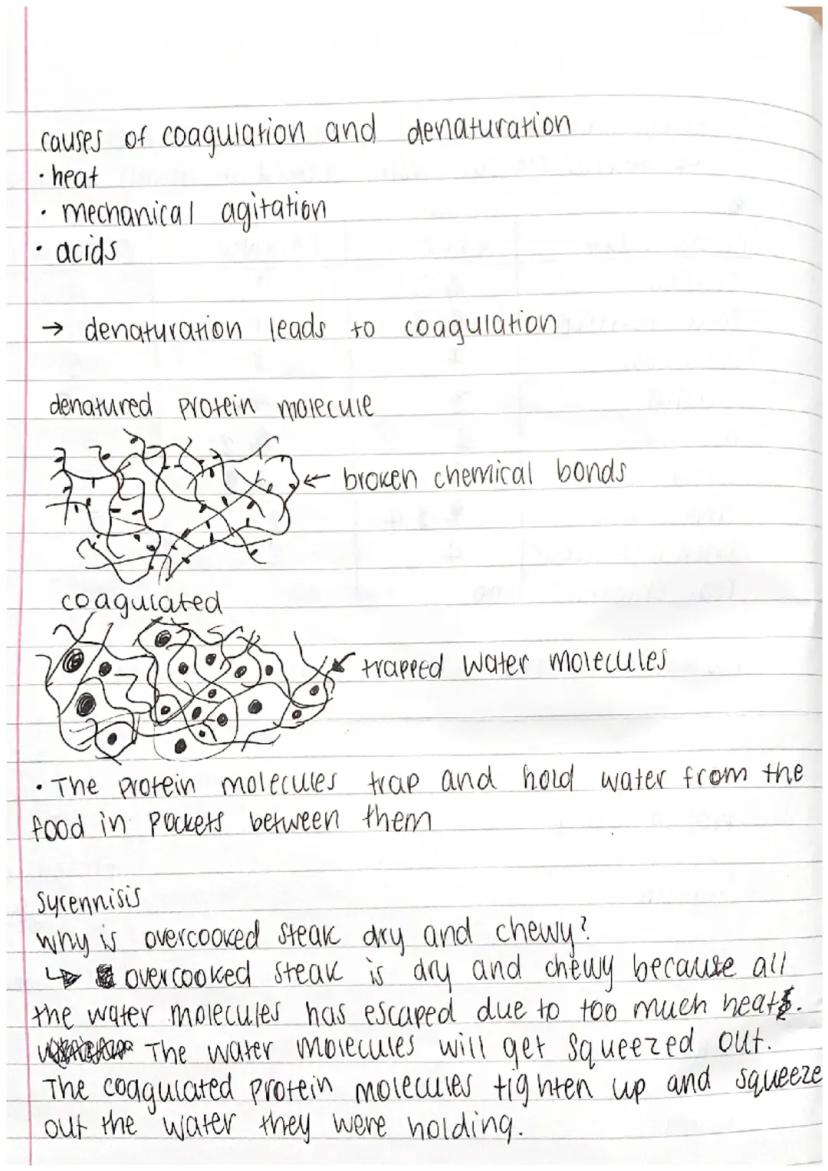 causes of coagulation and denaturation
· heat
· mechanical agitation
· acids
→ denaturation leads to coagulation
denatured protein molecule
← broken chemical bonds
coagulated
trapped water molecules
· The protein molecules trap and hold water from the
food in pockets between them
Syrennisis
Why is overcooked steak dry and chewy?
↳ overcooked steak is dry and chewy because all
the water molecules has escaped due to too much heat.
The water molecules will get squeezed out.
The coagulated protein molecules tighten up and squeeze
out the water they were holding.